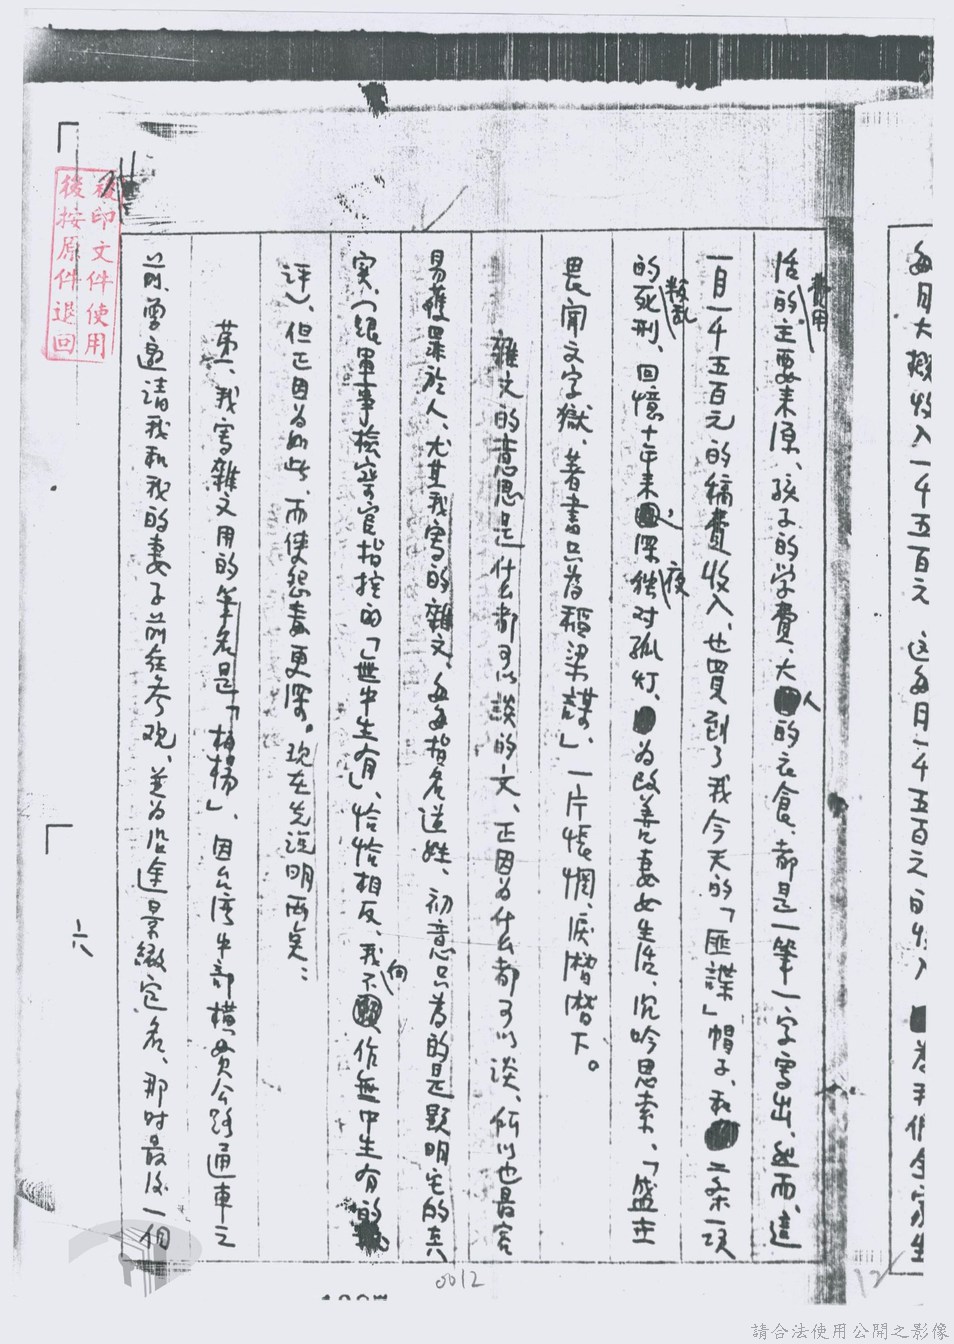 每月大概收入一千五百元 这每月一千五百元的收入 為我作全家生
活費用的主要来源、孩子的学費、大人的衣食、都是一筆一字寫出、然而、這
一月一千五百元的稿費收入、也買到了我今天的「匪諜」帽子、和二条一項
叛乱的死刑、回憶十年来,深夜独对孤灯、為改善妻女生活、沉吟思索、「盛世
畏聞文字獄、著書只為稻粱謀」、一片悵惘、淚潸潸下。
雜文的意思是什么都可以談的文、正因为什么都可以谈、所以也最容
易獲罪於人、尤其我寫的雜文、每每指名道姓、初意只為的是顯明它的真
实、(跟軍事檢察官指控的「無中生有」、恰恰相反、我不向作無中生有的
评)、但正因为如此、而使怨毒更深。现在先说明两点:
第一、我寫雜文用的筆名是「柏楊」、因台湾中部横貫公路通車之
前、曾邀請我和我的妻子前往参观、並为沿途景緻定名、那时最後一個
六
複印文件使用
後按原件退回
0012
12
請合法使用公開之影像